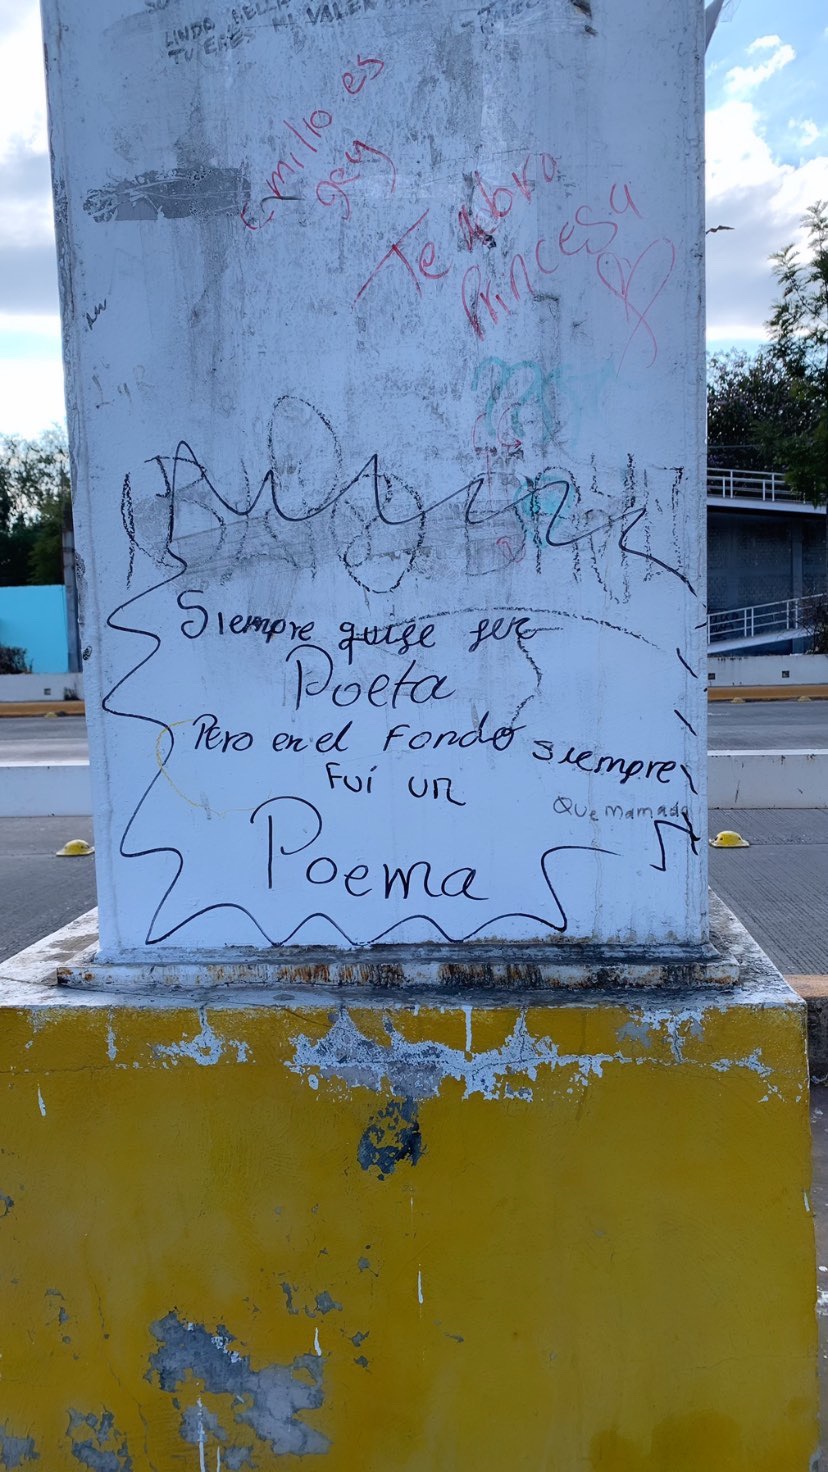 LINDA BELLA
TU ERES MI VALEN
Emilio es
gay
Te Abro
Princesa
Siempre quise ser
Poeta
Pero en el fondo siempre
Fuí un
Que mamada
Poema